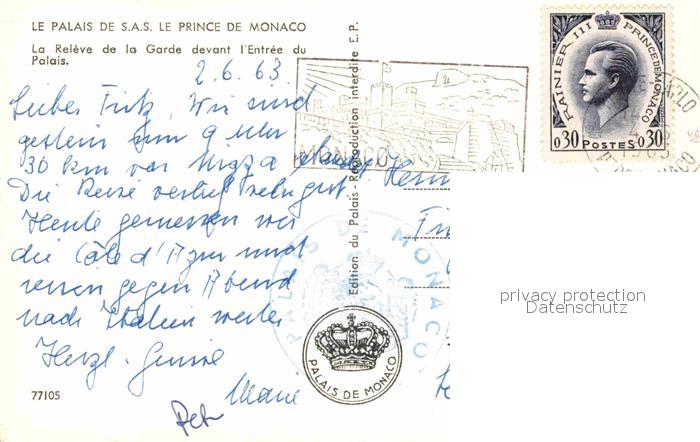 LE PALAIS DE S.A.S. LE PRINCE DE MONACO
La Relève de la Garde devant l'Entrée du
Palais.
2.6.63
Lieber Fritz, Wir sind
gestern um 9 Uhr
30 km vor Nizza
Die Reise verlief sehr gut
Heute geniessen wir
die Côte d'Azur und
reisen gegen Abend
nach Italien weiter
Herzl. Grüsse
77105
Edition du Palais - Reproduction Interdite E.P.
MONACO
RAINIER III PRINCE DE MONACO
0.30 POSTES 0.30
Herrn
PALAIS DE MONACO
PALAIS DE MONACO
privacy protection
Datenschutz